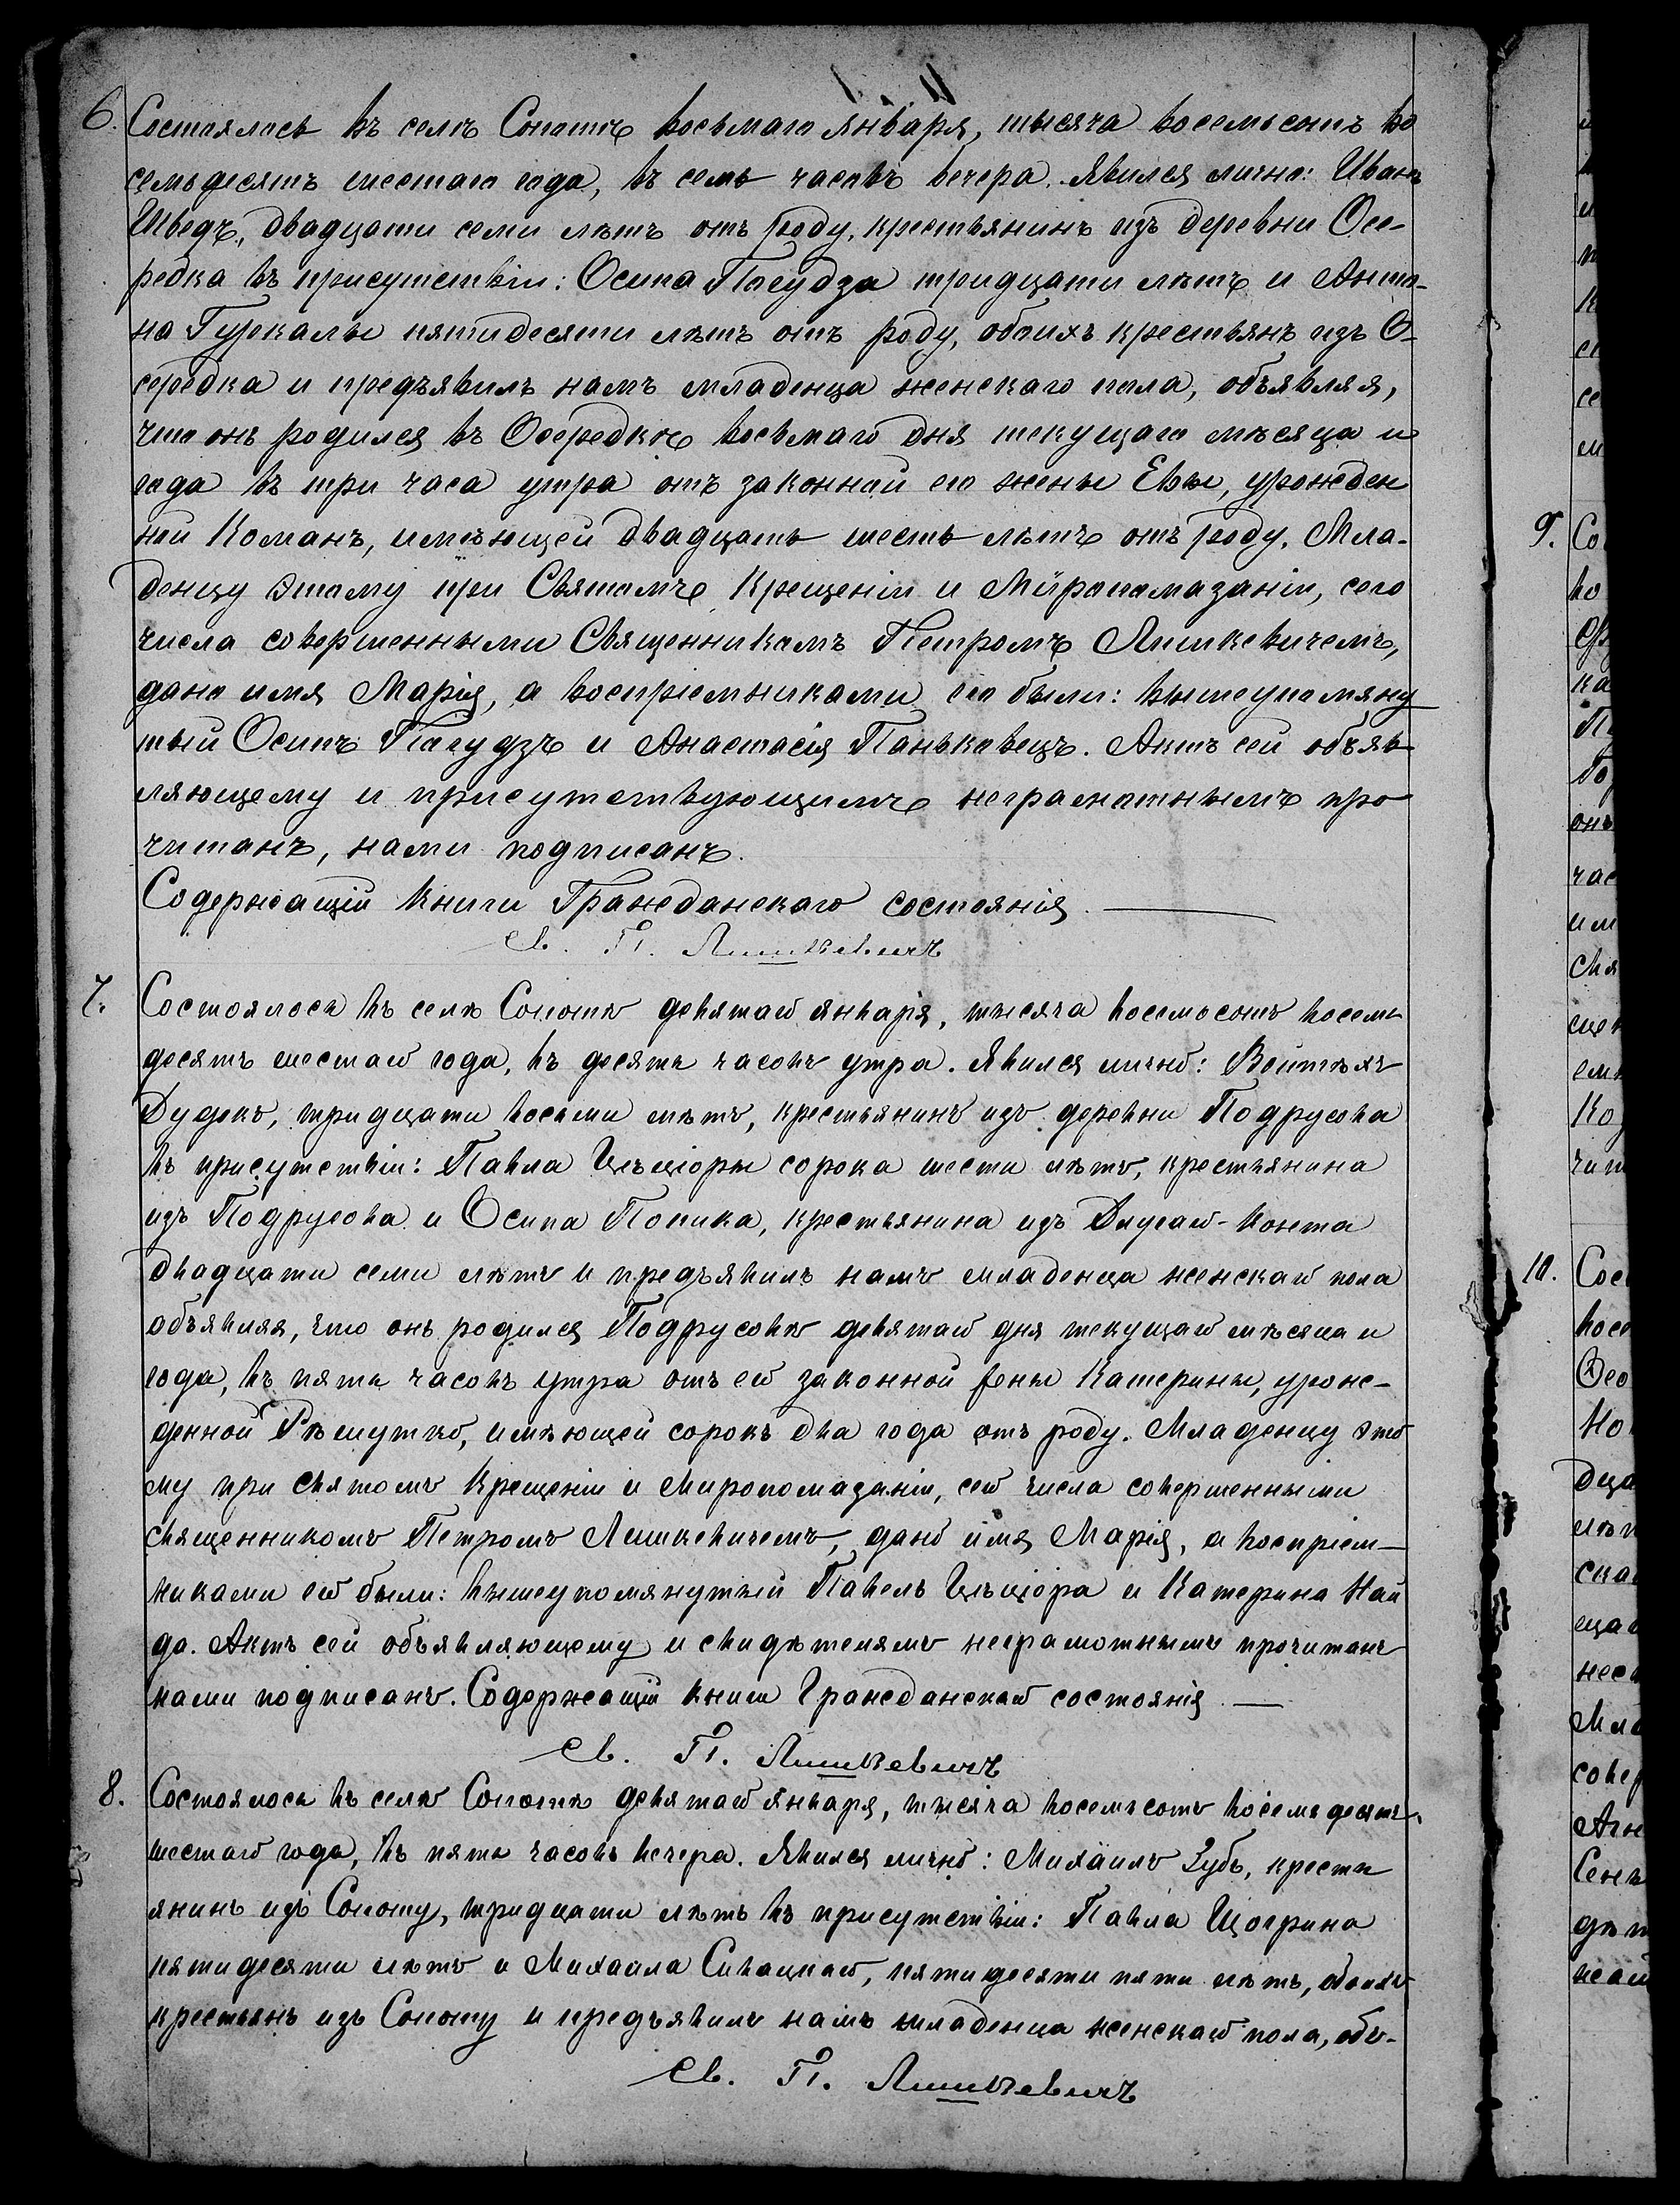 6. Состоялось въ селѣ Сопотѣ восьмаго Января, тысяча восемьсотъ во
семьдесятъ шестаго года, въ семь часовъ вечера. Явился лично: Иванъ
Шведъ, двадцати семи лѣтъ отъ роду, крестьянинъ изъ деревни Осе-
редка въ присутствіи: Осипа Погудза тридцати лѣтъ и Анто-
на Гуркалы пятидесяти лѣтъ отъ роду, обоихъ крестьянъ изъ О-
середка и предъявилъ намъ младенца женскаго пола, объявляя,
что онъ родился въ Осередкѣ восьмаго дня текущаго мѣсяца и
года въ три часа утра отъ законной его жены Евы, урожден
ной Команъ, имѣющей двадцать шесть лѣтъ отъ роду. Мла-
денцу этому при Святомъ Крещеніи и Мѵропомазаніи, сего
числа совершенными Священникомъ Петромъ Лишкевичемъ,
дано имя Марія, а воспріемниками его были: вышеупомяну
тый Осипъ Погудзъ и Анастасія Паньковецъ. Актъ сей объяв
ляющему и присутствующимъ неграмотнымъ про
читанъ, нами подписанъ.
Содержащій книги Гражданскаго состоянія.
Св. П. Лишкевичъ
7. Состоялось въ селѣ Сопотѣ девятаго января, тысяча восемьсотъ восемь
десятъ шестаго года, въ десять часовъ утра. Явился лично: Войтѣхъ
Дудекъ, тридцати восьми лѣтъ, крестьянинъ изъ деревни Подрусова
въ присутствіи: Павла Цѣціоры сорока шести лѣтъ, крестьянина
изъ Подрусова и Осипа Попика, крестьянина изъ Длугаго-Конта
двадцати семи лѣтъ и предъявилъ намъ младенца женскаго пола
объявляя, что онъ родился Подрусовѣ девятаго дня текущаго мѣсяца и
года, въ пять часовъ утра отъ его законной жены Катерины, урож-
денной Рѣшутко, имѣющей сорокъ два года отъ роду. Младенцу это
му при Святомъ Крещеніи и Миропомазаніи, сего числа совершенными
Священникомъ Петромъ Лишкевичемъ, дано имя Марія, а воспріем-
никами его были: вышеупомянутый Павелъ Цѣціора и Катерина Най
да. Актъ сей объявляющему и свидѣтелямъ неграмотнымъ прочитанъ
нами подписанъ. Содержащій книги Гражданскаго состоянія.
Св. П. Лишкевичъ
8. Состоялось въ селѣ Сопотѣ девятаго января, тысяча восемьсотъ восемьдесятъ
шестаго года, въ пять часовъ вечера. Явился лично: Михаилъ Зубъ, кресть
янинъ изъ Сопоту, тридцати лѣтъ въ присутствіи: Павла Щогрина
пятидесяти лѣтъ и Михаила Сивацкаго, пятидесяти пяти лѣтъ, обоихъ
крестьянъ изъ Сопоту и предъявилъ намъ младенца женскаго пола, объ-
Св. П. Лишкевичъ
9.
10.